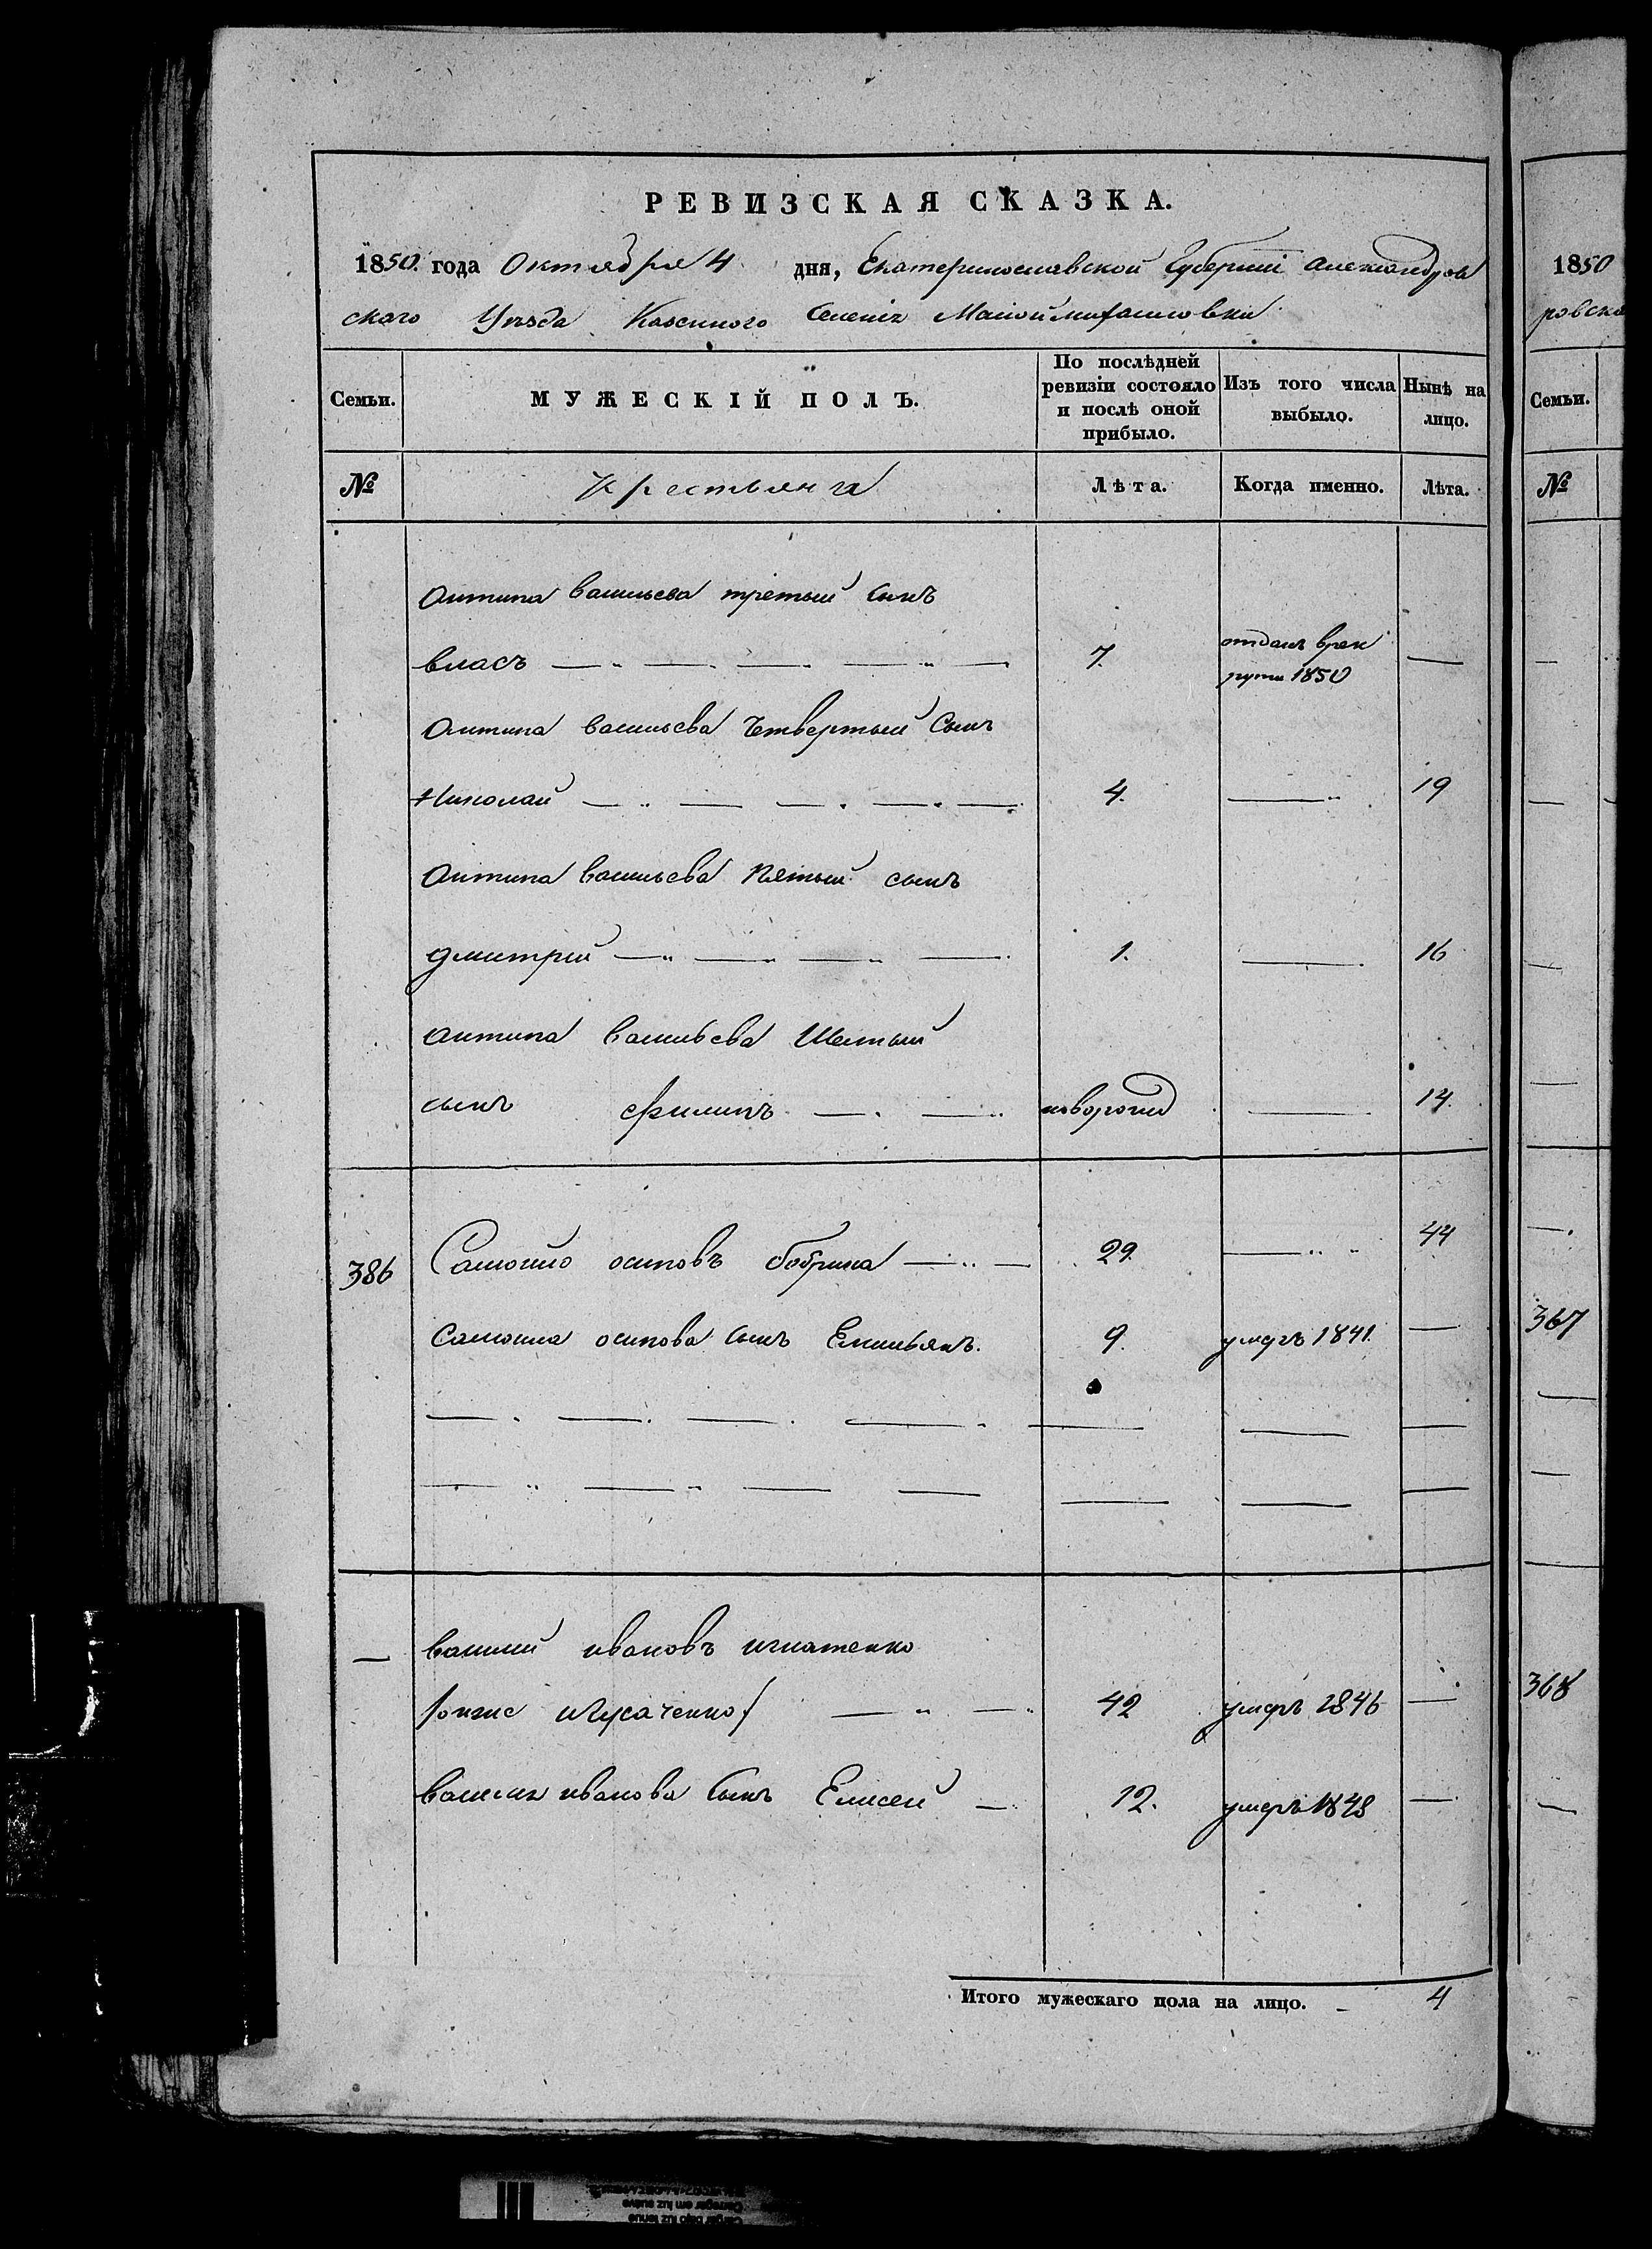 РЕВИЗСКАЯ СКАЗКА.
1850. года Октября 4 дня, Екатеринославской Губерніи Александров
скаго Уѣзда Казеннаго Селенія Малоймихайловки
Семьи. МУЖЕСКІЙ ПОЛЪ. По послѣдней ревизіи состояло и послѣ оной прибыло. Изъ того числа выбыло. Нынѣ на лицо.
№ Крестьяне Лѣта. Когда именно. Лѣта.
Антипа Васильева третьій сынъ
Власъ 7. отданъ врек
руты 1850
Антипа Васильева Четвертый Сынъ
Николай 4. 19
Антипа Васильева Пятый сынъ
Дмитрій 1. 16
Антипа Васильева Шестый
сынъ Филипъ новорожд 14.
386 Самойло осиповъ бобрика 29. 44
Самойла осипова сынъ Емельянъ. 9. умеръ 1841.
Василій ивановъ игнатенко
/онже Мусаченко/ 42 умеръ 1846
Василія иванова сынъ Елисей 12. умеръ 1848
Итого мужескаго пола на лицо. 4
1850
ровска
Семьи.
№
367
368